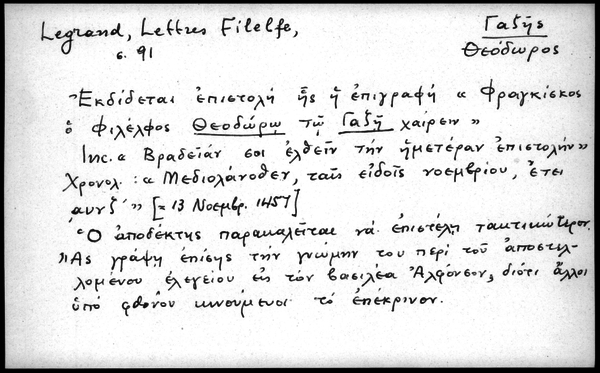 Legrand, Lettres Filelfe,
Γαζῆς
σ. 91
Θεόδωρος
Ἐκδίδεται ἐπιστολή ἧς ἡ ἐπιγραφή « Φραγκίσκος
ὁ Φιλέλφος Θεοδώρῳ τῷ Γαζῇ χαίρειν »
Inc. « Βραδεῖάν σοι ἐλθεῖν τήν ἡμετέραν ἐπιστολήν»
Χρονολ. : « Μεδιολάνοθεν, ταῖς εἰδοῖς νοεμβρίου, ἔτει
͵αυνζ´ » [= 13 Νοεμβρ. 1457]
Ὁ ἀποδέκτης παρακαλεῖται νά ἐπιστέλῃ τακτικώτερον.
Ἄς γράψῃ ἐπίσης τήν γνώμην του περί τοῦ ἀποστελ-
λομένου ἐλεγείου εἰς τόν βασιλέα Ἀλφόνσον, διότι ἄλλοι
ὑπό φθόνου κινούμενοι τό ἐπέκρινον.